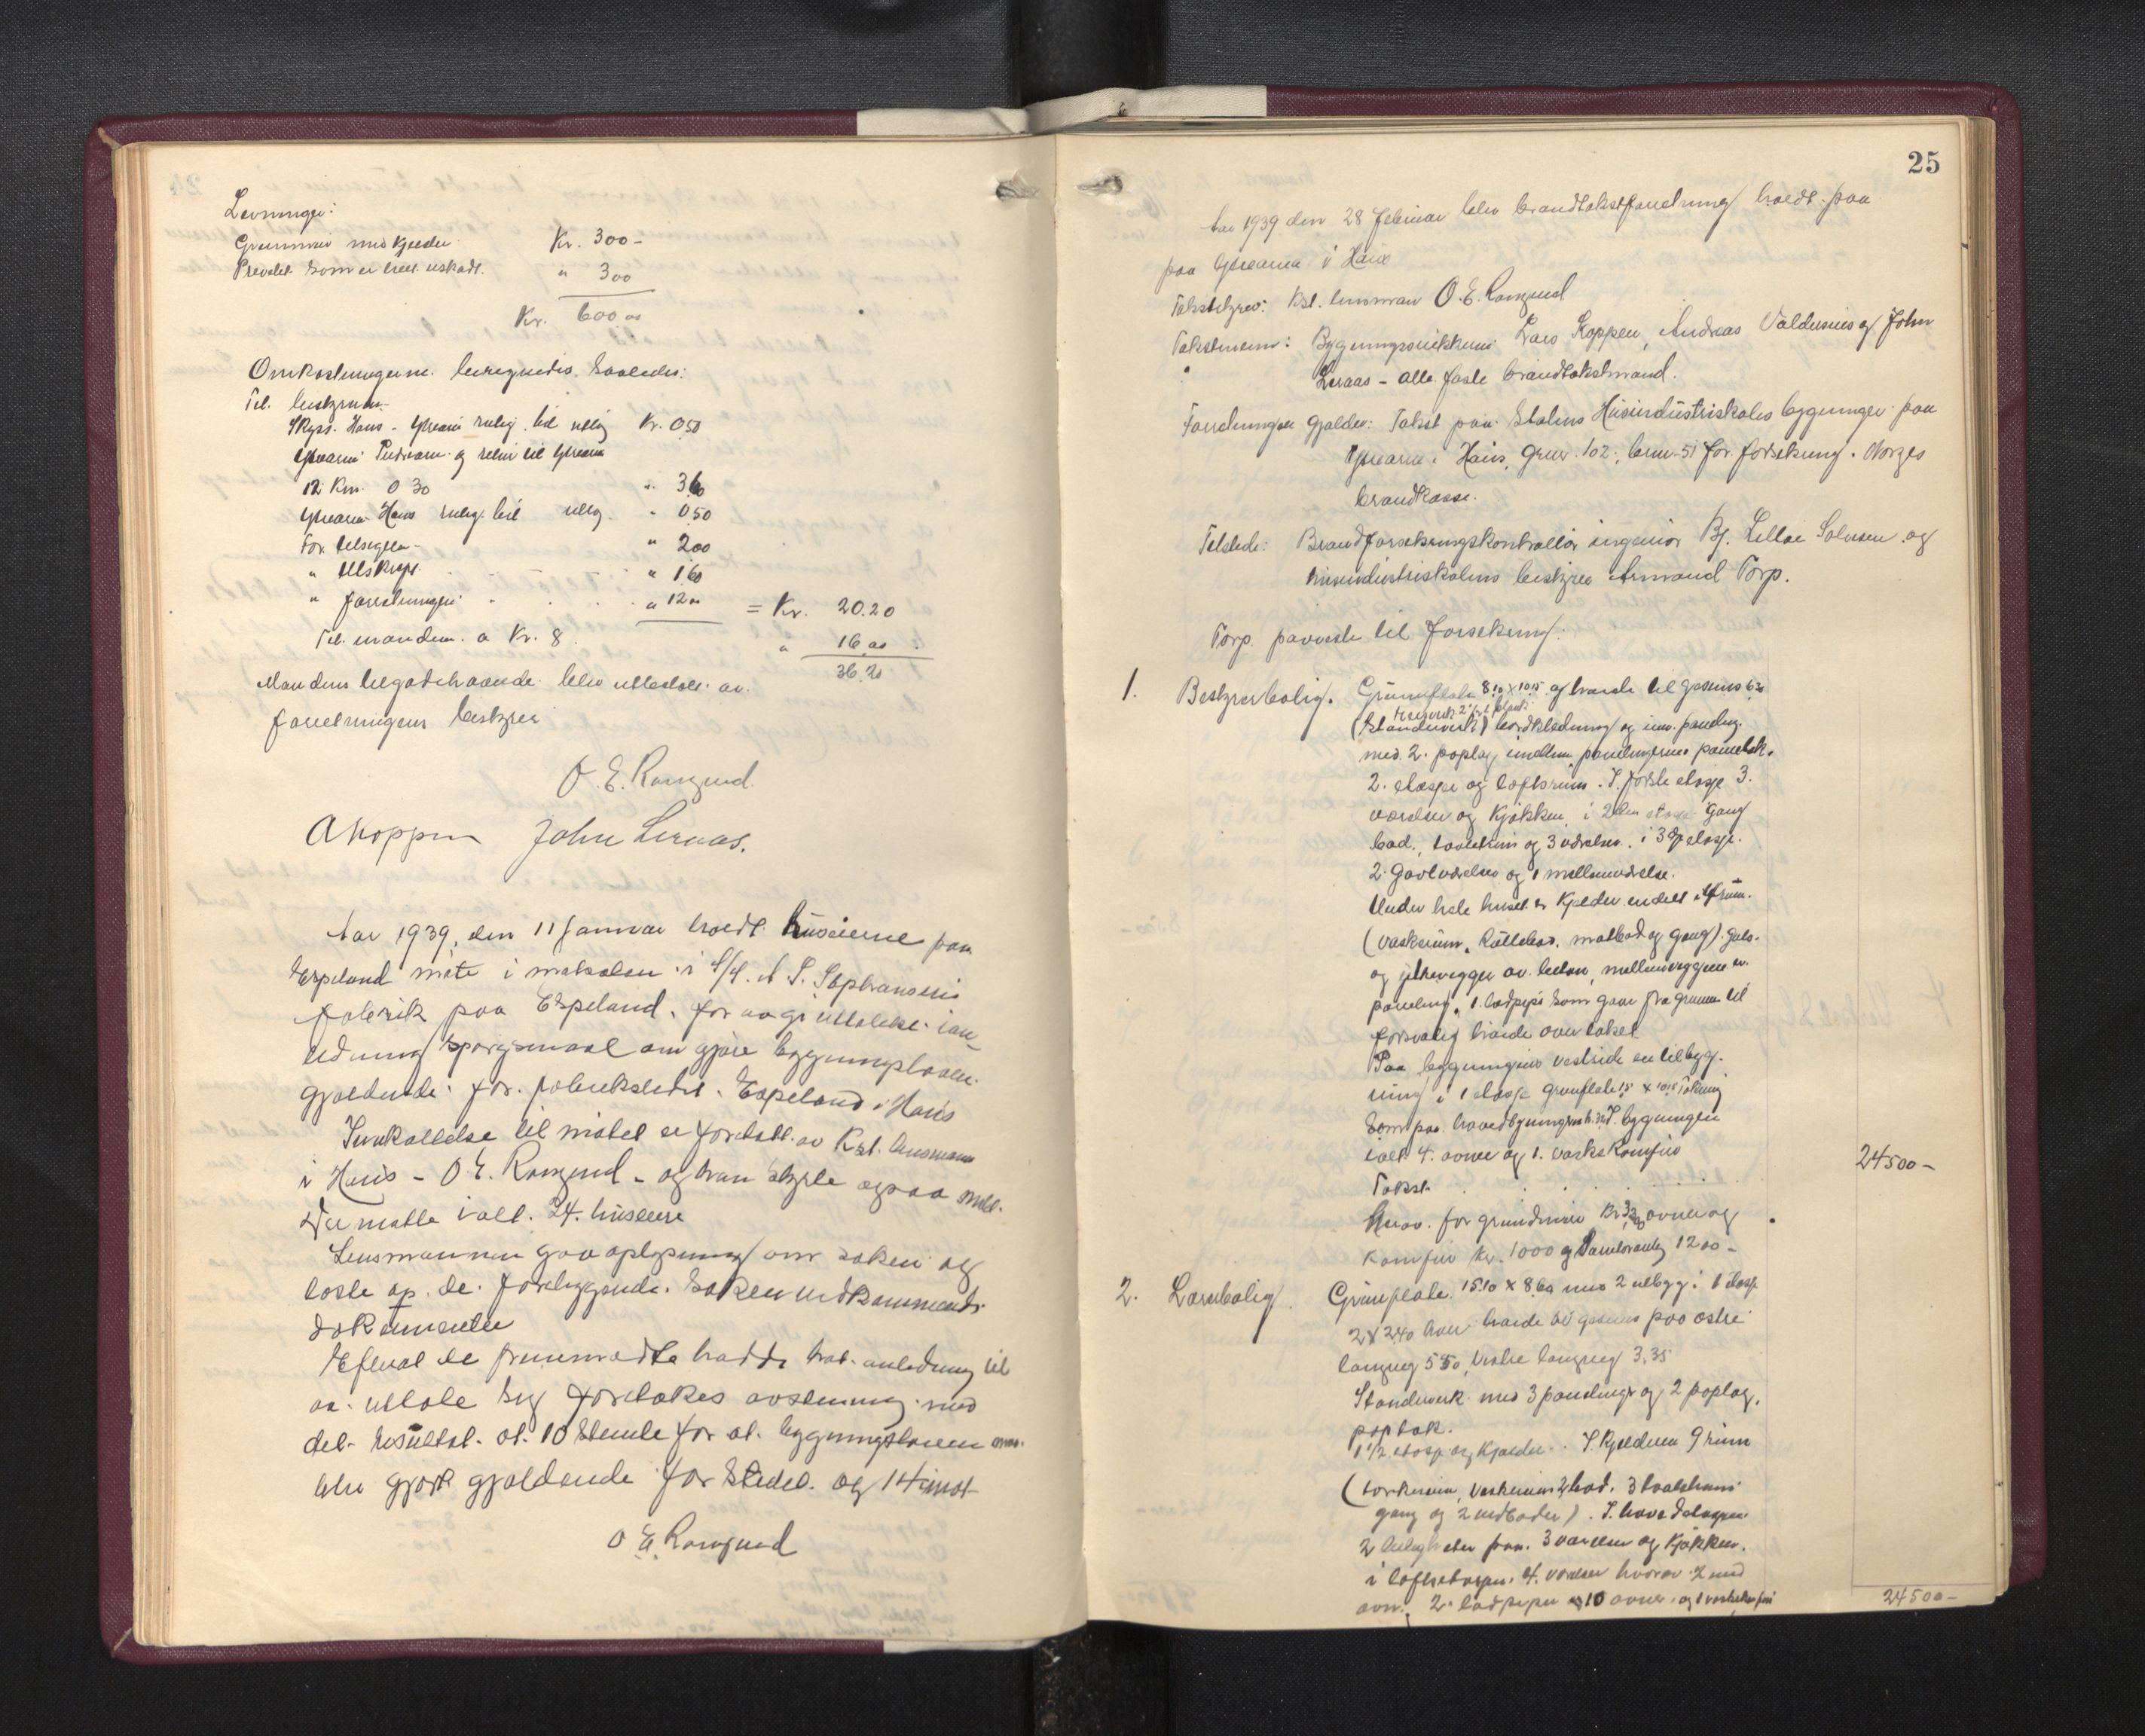 Levninger:
Grunnmur med kjelder Kr. 300-
Privetet som er uskadt. " 300
Kr. 600.00
Omkostningerne beregnedes saaledes:
Til bestyreren
Skyss. Haus - Ytrearne Kr. 0.50
og retur til Ytrearne
12 Km. 0 30 " 3.60
Ytrearne Haus " 0.50
For " 2.00
" Utskrift " 1.60
" forretningen " 12 00 = Kr. 20.20
Til mændene a Kr. 8. " 16.00
36.20
Mændens tilgodehavende blev utbetalt av
forretningens bestyrer
O. E. Romgund.
A Koppen John Leraas.
Aar 1939, den 11 Januar holdt huseierne paa
Espeland møte i matsalen i A/S
fabrik paa Espeland, for aa gi uttalelse i an-
ledning spørgsmaal om gjøre bygningsloven
gjældende for fabrikstedet Espeland i Haus
Innkallelse til møtet er foretatt av Kst. lensmann
i Haus - O E. Romgund - og han styrte ogsaa møtet.
Der møtte i alt 24 huseiere
Lensmannen gav oplysning om saken og
leste op de foreliggende saken vedkommende
dokumenter
Efterat de fremmøtte hadde hat anledning til
aa uttale sig foretokes avstemning med
det resultat at 10 stemte for at bygningsloven
blir gjort gjældende for stedet og 14 imot
O. E. Romgund
25
Aar 1939 den 28 Februar blev brandtakstforretning holdt paa
paa Ytrearne i Haus
Takstbestyrer: Kst. lensman O. E. Romgund
Takstmenn: Bygningssnikkerne Lars Koppen, Andreas Valdersnes og John
Leraas - alle faste brandtakstmænd.
Forretningen gjælder: Takst paa Statens Husindustriskoles bygninger paa
Ytrearne i Haus, gnr. 102, bnr. 51 for forsikring i Norges
brandkasse.
Tilstede: Brandforsikringskontrollør ingeniør Bj. Lillae Salvesen og
husindustriskolens bestyrer Armand Torp.
Torp paaviste til forsikring:
1. Bestyrerbolig. Grunnflate 8.10 x 10.15 og høide til gesims 6.20
(Standerverk) bordkledning og inv. paneling
med 2 poplag imellem panelingerne
2 etasjer og loftsrum. I første etasje 3
værelser og kjøkken, i 2den etasje gang
bad, toaletrum og 3 værelser, i 3dje etasje
2 gavlværelser og 1 mellemværelse.
Under hele huset er kjelder indelt i 4 rum.
(vaskerum, rullebod, matbod og gang). Gulv
og yttervegger av beton, mellemveggene er
paneling, 1 ladpipe som gaar fra grunnen til
forsvarlig høide over taket
Paa bygningens vestside en tilbyg-
ning i 1 etasje grunflate
som paa hovedbygningen I bygningen
ialt 4 ovner og 1 vaskekomfur
Takst . . . . . 24500-
Herav for grundmur ovner og
komfur kr. 1000 og 1200-
2. Lærerbolig Grunflate 15.10 x 8.60 med 2 utbygg i 1 etasje
2 x 2.40 høide til gesims paa østre
langveg 5.50, vestre langveg 3.35
Standerverk med 3 panelinger og 2 poplag,
poptak.
1 1/2 etasje og kjælder. I kjelderen 9 rum
(torkerum, vaskerum, 2 bad, 3 toaletrum
gang og 2 vedboder). I hovedetasjen
2 leiligheter paa 3 værelser og kjøkken,
i loftsetasjen 4 værelser hvorav 2 med
ovn, 2 ladpiper og 10 ovner og 1 vaskekomfur
24500-